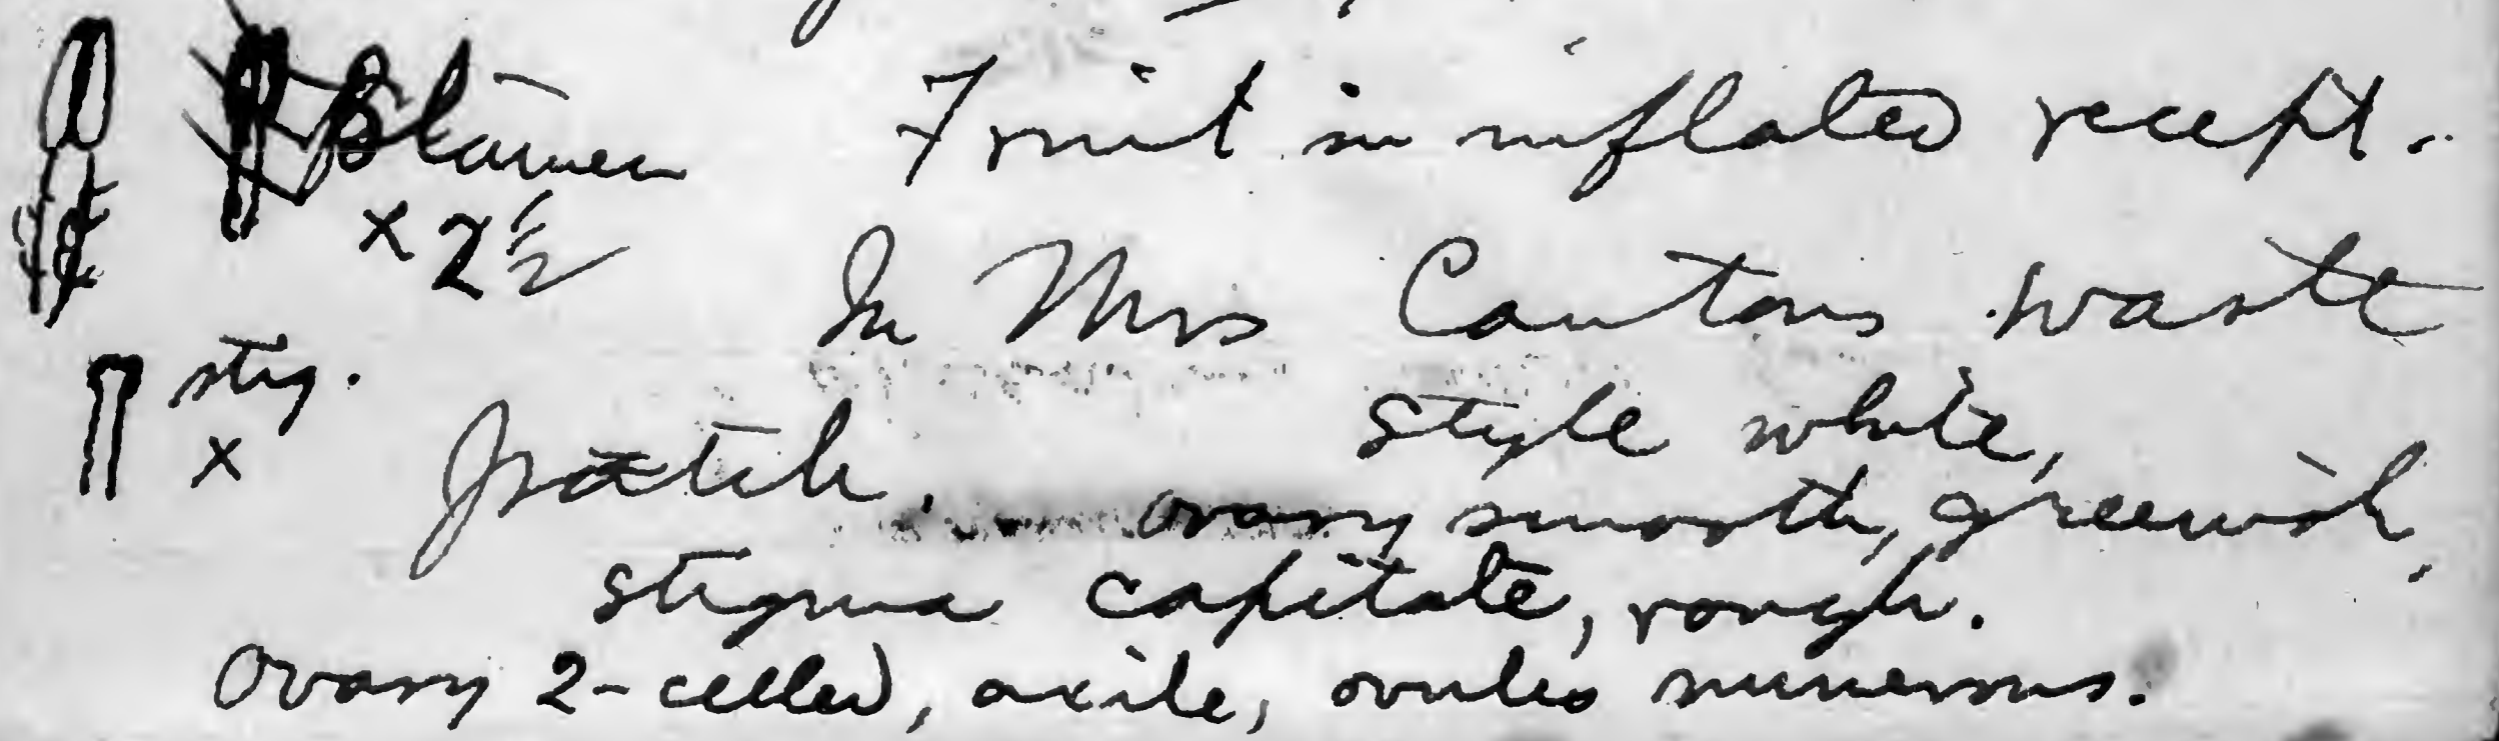 Stamen Fruit in inflated recept.
x 2 1/2
In Mrs Cantons waste
stig. style white,
x patch. ovary smooth, greenish,
stigma capitate, rough.
Ovary 2-celled, axile, ovules numerous.